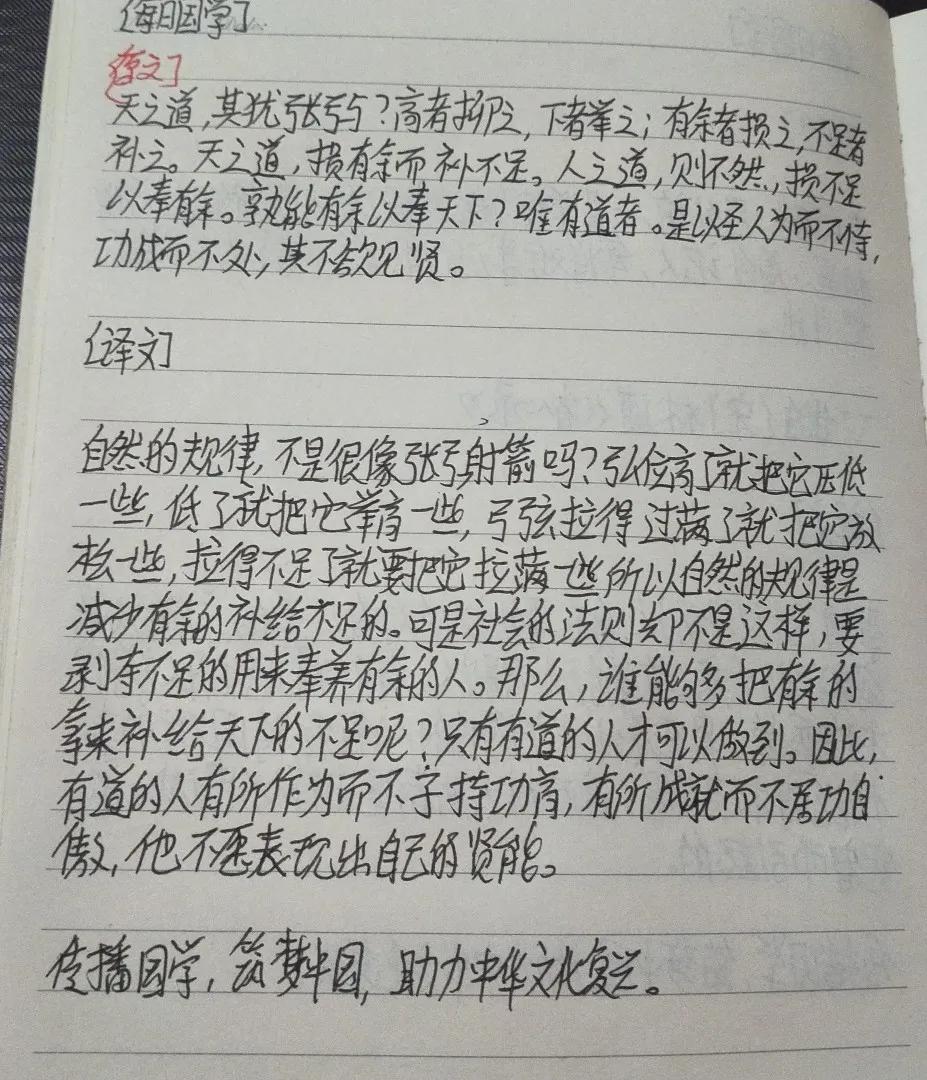 [每日国学]
[原文]
天之道,其犹张弓与?高者抑之,下者举之;有余者损之,不足者
补之。天之道,损有余而补不足。人之道,则不然,损不足
以奉有余。孰能有余以奉天下?唯有道者。是以圣人为而不恃,
功成而不处,其不欲见贤。
[译文]
自然的规律,不是很像张弓射箭吗?弘位高了就把它压低
一些,低了就把它举高一些,弓弦拉得过满了就把它放
松一些,拉得不足了就要把它拉满一些所以自然的规律是
减少有余的补给不足的。可是社会的法则却不是这样,要
剥夺不足的用来奉养有余的人。那么,谁能够多把有余的
拿来补给天下的不足呢?只有有道的人才可以做到。因此,
有道的人有所作为而不予持功高,有所成就而不居功自
傲,他不愿表现出自己的贤能。
传播国学,筑梦中国,助力中华文化复兴。